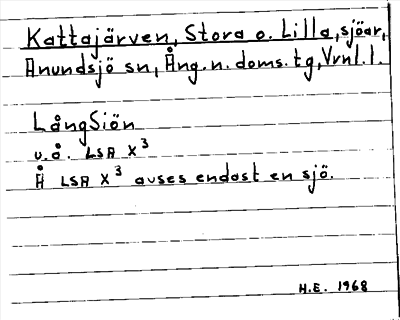 Kattajärven, Stora o. Lilla, sjöar,
Anundsjö sn, Ång. n. doms. tg, Vrnl. l.
LångSiön
u.å. LSA X³
Å LSA X³ avses endast en sjö.
H.E. 1968